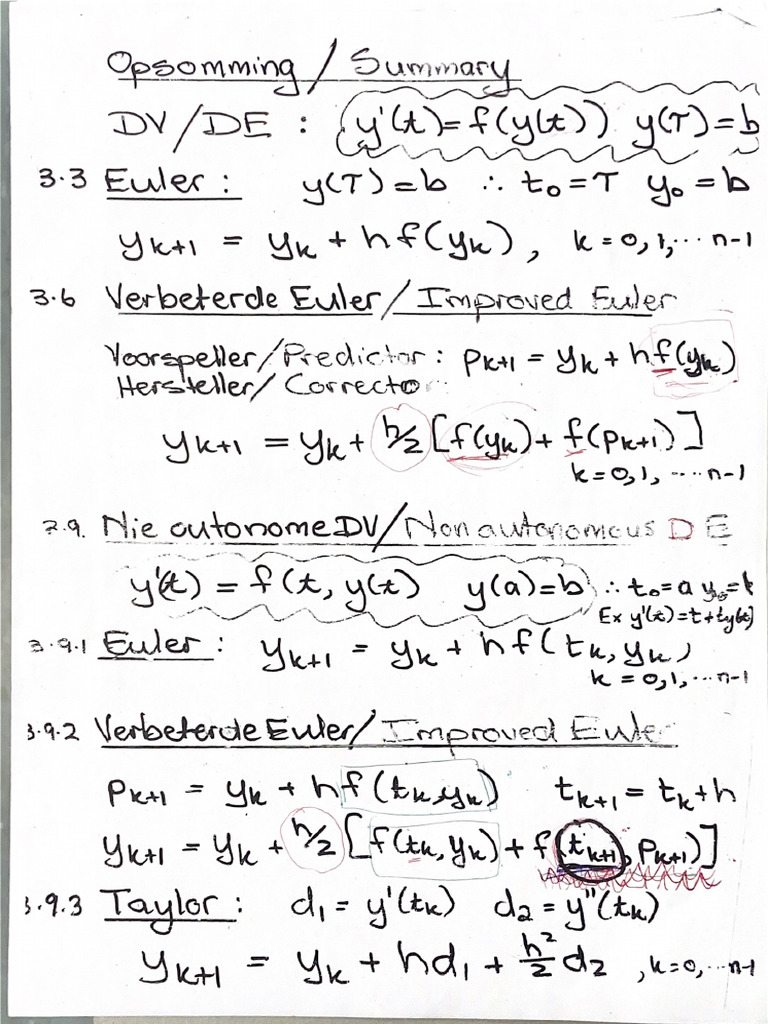 Opsomming / Summary
DV/DE : y'(t) = f(y(t)) y(T) = b
3.3 Euler : y(T) = b ∴ t₀ = T y₀ = b
yₖ₊₁ = yₖ + hf(yₖ), k = 0, 1, ... n-1
3.6 Verbeterde Euler / Improved Euler
Voorspeller/Predictor : pₖ₊₁ = yₖ + hf(yₖ)
Hersteller/ Correcto
yₖ₊₁ = yₖ + h/2 [f(yₖ) + f(pₖ₊₁)]
k = 0, 1, ... n-1
3.9. Nie autonome DV/Non autonomous DE
y'(t) = f(t, y(t) y(a) = b ∴ t₀ = a y₀ = b
Ex y'(t) = t + ty(t)
3.9.1 Euler : yₖ₊₁ = yₖ + hf(tₖ, yₖ)
k = 0, 1, ... n-1
3.9.2 Verbeterde Euler/ Improved Eule
pₖ₊₁ = yₖ + hf(tₖ, yₖ) tₖ₊₁ = tₖ + h
yₖ₊₁ = yₖ + h/2 [f(tₖ, yₖ) + f(tₖ₊₁, pₖ₊₁)]
3.9.3 Taylor : d₁ = y'(tₖ) d₂ = y''(tₖ)
yₖ₊₁ = yₖ + hd₁ + h²/2 d₂ , k = 0, ... n-1